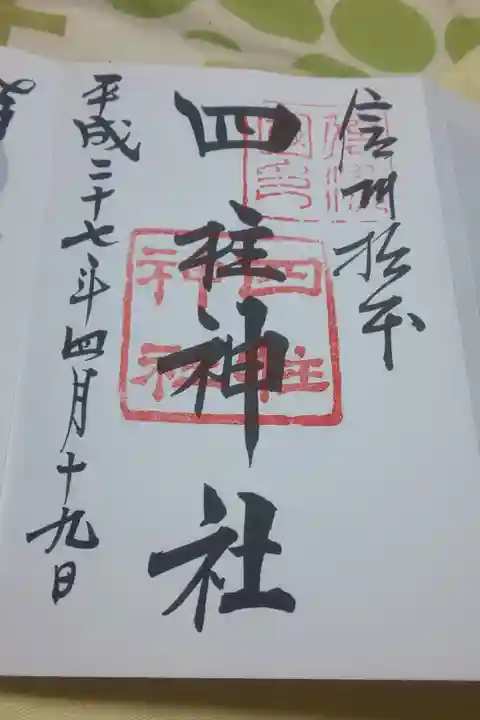 信州松本
四柱神社
四柱
神社
平成二十七年四月十九日